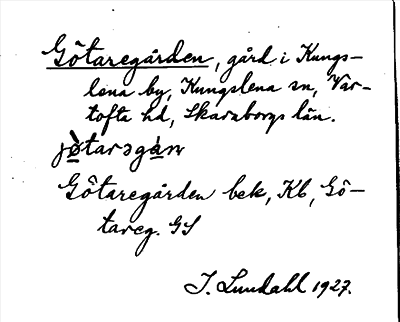 Götaregården, gård i Kungs-
lena by, Kungslena sn, Var-
tofta hd, Skaraborgs län.
jøtarəgàṇ
Götaregården bek, Kb, Gö-
tareg. GS
I. Lundahl 1927.